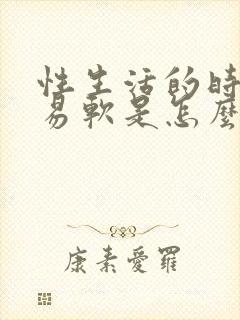 性生活的時
易軟是怎麼
康素愛羅